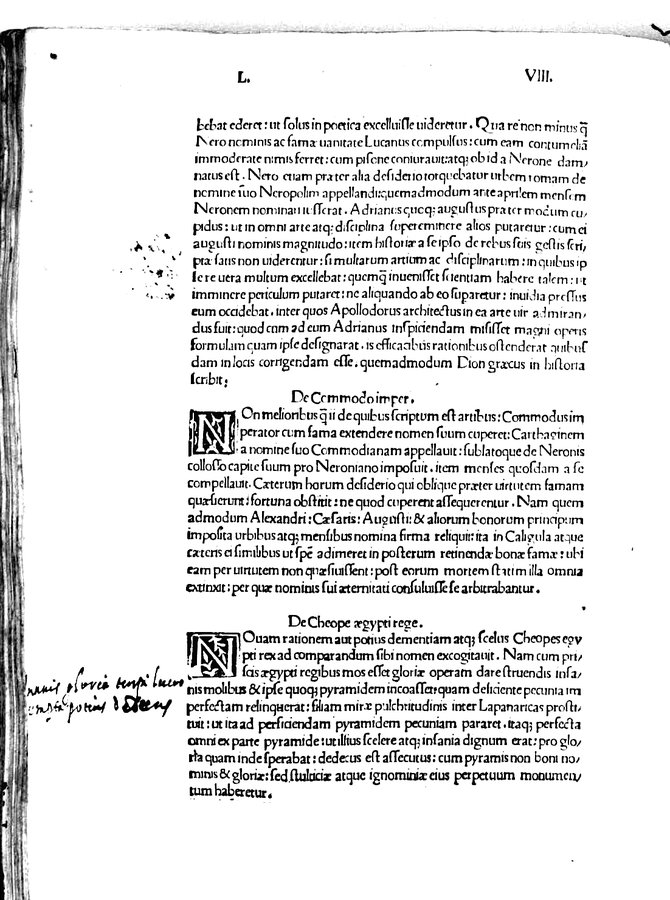 L. VIII.
bebat ederet: ut solus in poetica excelluisse uideretur. Qua re non minus q̃
Nero nominis ac famæ uanitate Lucanus compulsus: cum eam contumeliã
immoderate nimis ferret: cum pisone coniurauit atq; ob id a Nerone dam/
natus est. Nero etiam præter alia desiderio torquebatur urbem romam de
nomine suo Neropolim appellandi: quemadmodum ante aprilem mensem
Neronem nominari iusserat. Adrianus quoq; augustus præter modum cu/
pidus: ut in omni arte atq; disciplina supereminere alios putaretur: cum ei
augusti nominis magnitudo: item historiæ a se ipso de rebus suis gestis scri/
ptæ satis non uiderentur: si multarum artium ac disciplinarum: in quibus ip
se re uera multum excellebat: quemq; inuenisset scientiam habere talem: ut
imminere periculum putaret: ne aliquando ab eo supa̅retur: inuidia pressus
eum occidebat. inter quos Apollodorus architectus in ea arte uir admiran/
dus fuit: quod cum ad eum Adrianus inspiciendam misisset magni operis
formulam quam ipse designarat. is efficacibus rationibus ostenderat quibus
dam in locis corrigendam esse. quemadmodum Dion græcus in historia
scribit;
De Commodo imper.
NOn melioribus q̃ ii de quibus scriptum est artibus: Commodus im
perator cum fama extendere nomen suum cuperet: Carthaginem
a nomine suo Commodianam appellauit: sublatoque de Neronis
collosso capite suum pro Neroniano imposuit. item menses quosdam a se
compellauit. Cæterum horum desiderio qui oblique præter uirtutem famam
quæsierunt: fortuna obstitit: ne quod cuperent assequerentur. Nam quem
admodum Alexandri: Cæsaris: Augusti: & aliorum bonorum principum
imposita urbibus atq; mensibus nomina firma reliquit: ita in Caligula atque
cæteris ei similibus ut spẽ adimeret in posterum retinendæ bonæ famæ: ubi
eam per uirtutem non quæsiuissent: post eorum mortem statim illa omnia
extinxit: per quæ nominis sui æternitati consuluisse se arbitrabantur.
De Cheope ægypti rege.
NOuam rationem aut potius dementiam atq; scelus Cheopes egy
pti rex ad comparandum sibi nomen excogitauit. Nam cum pri/
scis ægypti regibus mos esset gloriæ operam dare struendis insa/
nis molibus & ipse quoq; pyramidem incoasset: quam deficiente pecunia im
perfectam relinqueret: filiam miræ pulchritudinis inter Lapanaricas prosti/
tuit: ut ita ad perficiendam pyramidem pecuniam pararet. itaq; perfecta
omni ex parte pyramide: ut illius scelere atq; insania dignum erat: pro glo/
ria quam inde sperabat: dedecus est assecutus: cum pyramis non boni no/
minis & gloriæ: sed stulticiæ atque ignominiæ eius perpetuum monumen/
tum haberetur.